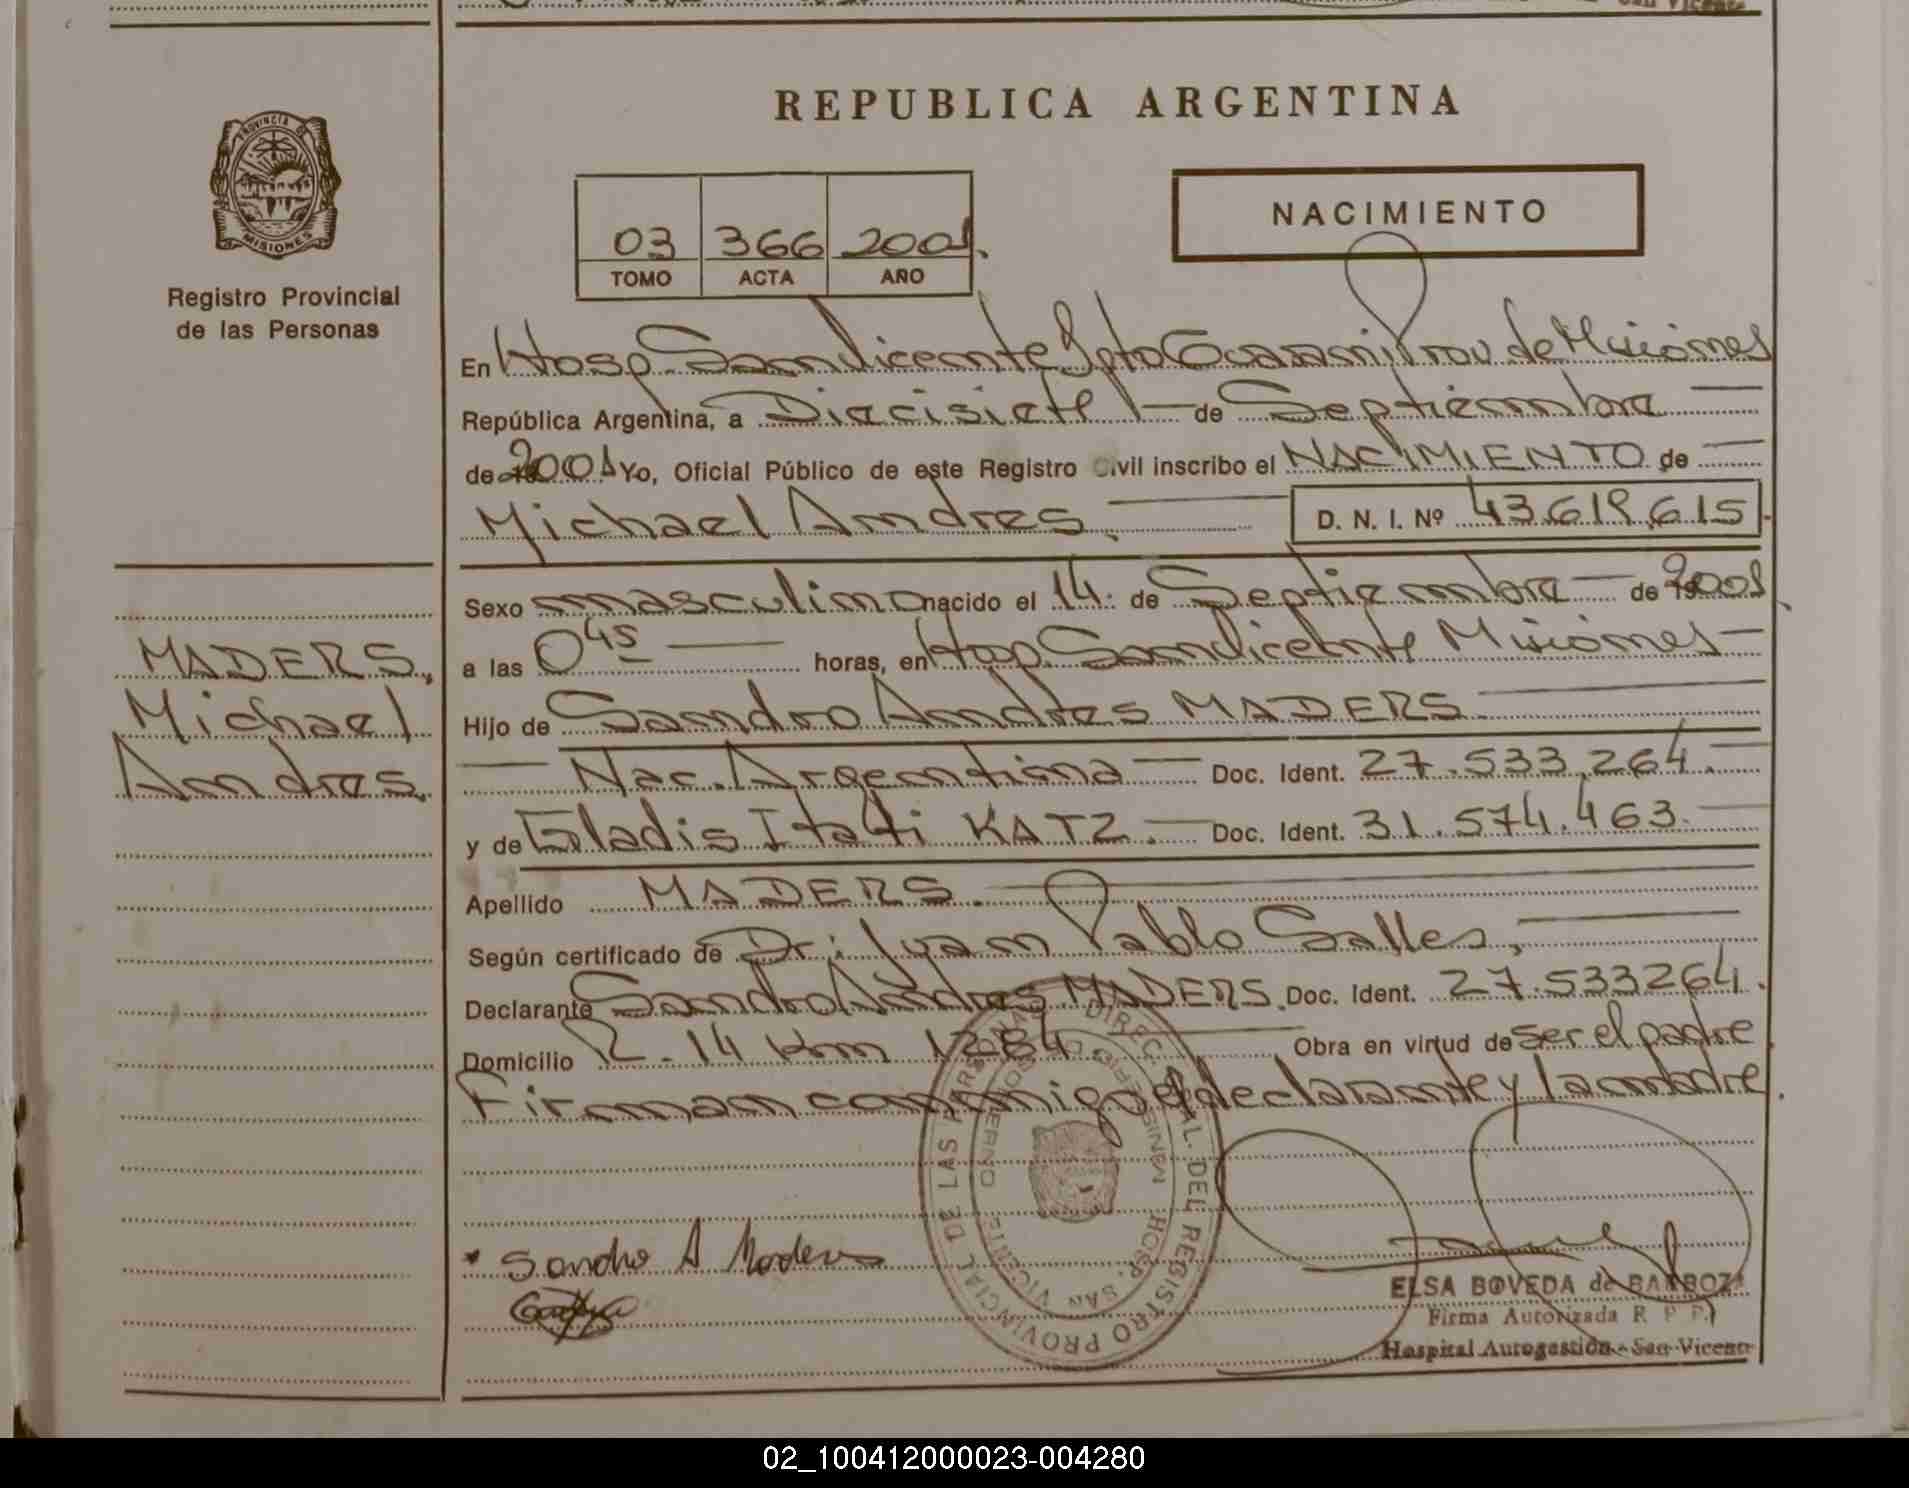 REPUBLICA ARGENTINA
PROVINCIA DE
MISIONES
Registro Provincial
de las Personas
03 366 2001.
TOMO ACTA AÑO
NACIMIENTO
En Hosp. San Vicente Dpto Guarani Prov. de Misiones
República Argentina, a Diecisiete de Septiembre
de 2001 Yo, Oficial Público de este Registro Civil inscribo el NACIMIENTO de
Michael Andres. D. N. I. Nº 43.619.615
Sexo masculino nacido el 14. de Septiembre de 2001
a las 0 45 horas, en Hosp. San Vicente Misiones
Hijo de Sandro Andres MADERS.
Nac. Argentina Doc. Ident. 27.533.264.
y de Gladis Itati KATZ. Doc. Ident. 31.574.463.
Apellido MADERS.
Según certificado de Dr: Juan Pablo Salles,
Declarante Sandro Andres MADERS. Doc. Ident. 27.533264.
Domicilio R. 14 Km 1284. Obra en virtud de ser el padre
Firman conmigo el declarante y la madre.
MADERS,
Michael
Andres.
Sandro A Maders
DIREC. GRAL. DEL REGISTRO PROVINCIAL DE LAS PERSONAS
HOSP. SAN VICENTE
ELSA BOVEDA de BARBOZA
Firma Autorizada R P P.
Hospital Autogestión - San Vicente
02_100412000023-004280